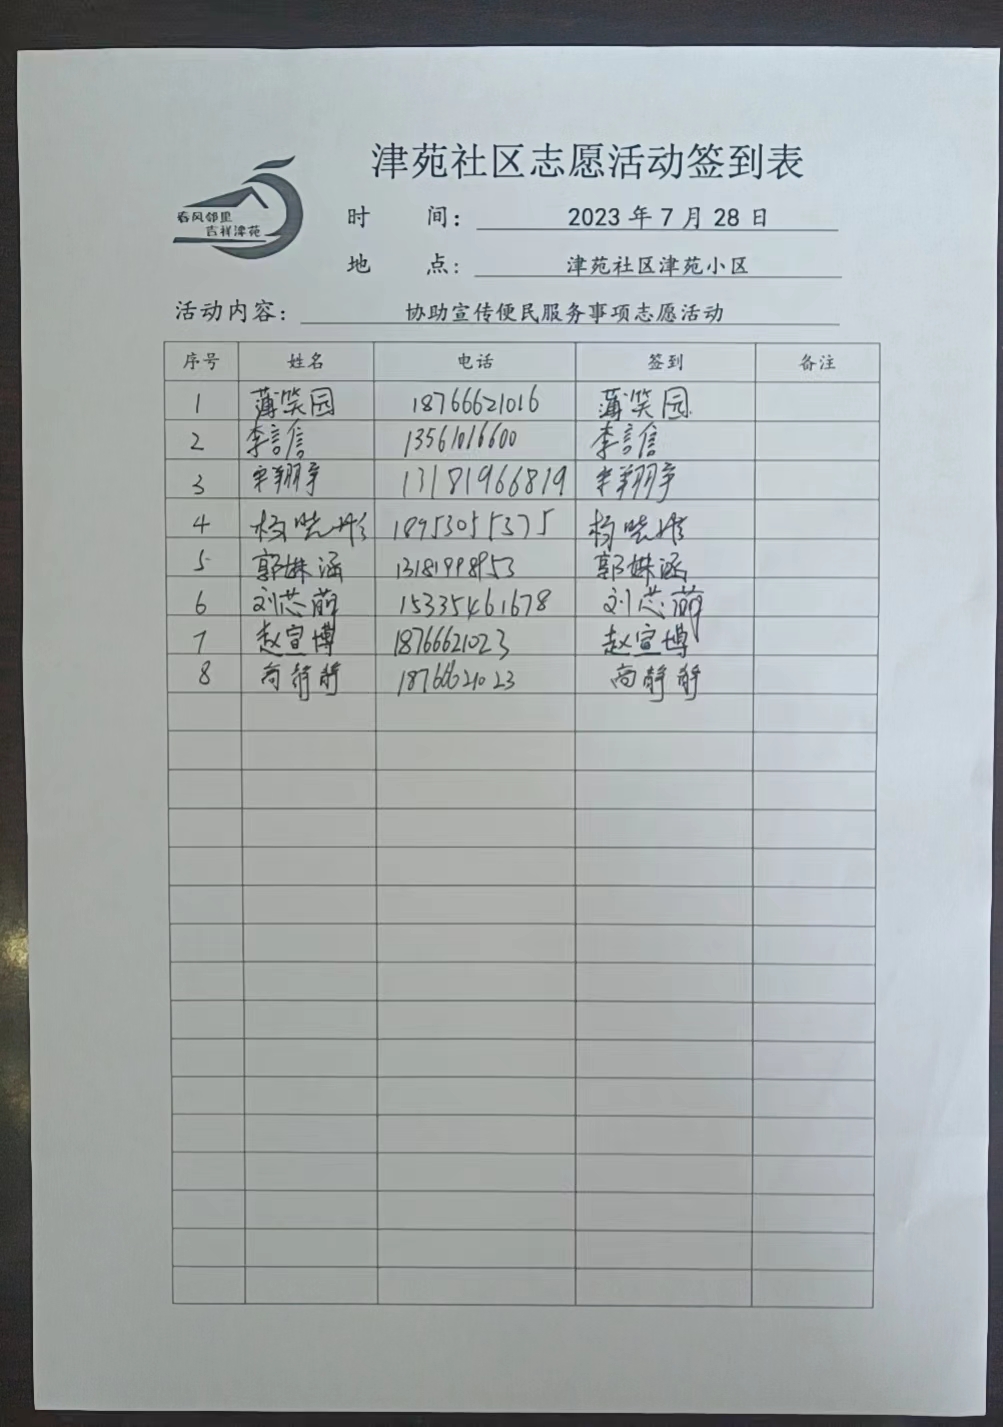 津苑社区志愿活动签到表
春风邻里
吉祥津苑
时 间： 2023 年 7 月 28 日
地 点： 津苑社区津苑小区
活动内容： 协助宣传便民服务事项志愿活动
序号 姓名 电话 签到 备注
1 薄笑园 18766621016 薄笑园
2 李言信 13561016600 李言信
3 13181966819
4 杨晓彤 18953055375 杨晓彤
5 郭姝涵 13181998953 郭姝涵
6 刘芯萌 15335461678 刘芯萌
7 赵宣博 18766621023 赵宣博
8 尚静静 18766621023 尚静静